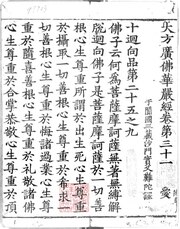 大方廣佛華嚴經卷第三十一 愛
于闐國三藏沙門實叉難陀譯
十迴向品第二十五之九
佛子云何為菩薩摩訶薩無著無縛解
脫迴向佛子是菩薩摩訶薩於一切善
根心生尊重所謂於出生死心生尊重
於攝取一切善根心生尊重於希求一
切善根心生尊重於悔諸過業心生尊
重於隨喜善根心生尊重於禮敬諸佛
心生尊重於合掌恭敬心生尊重於頂